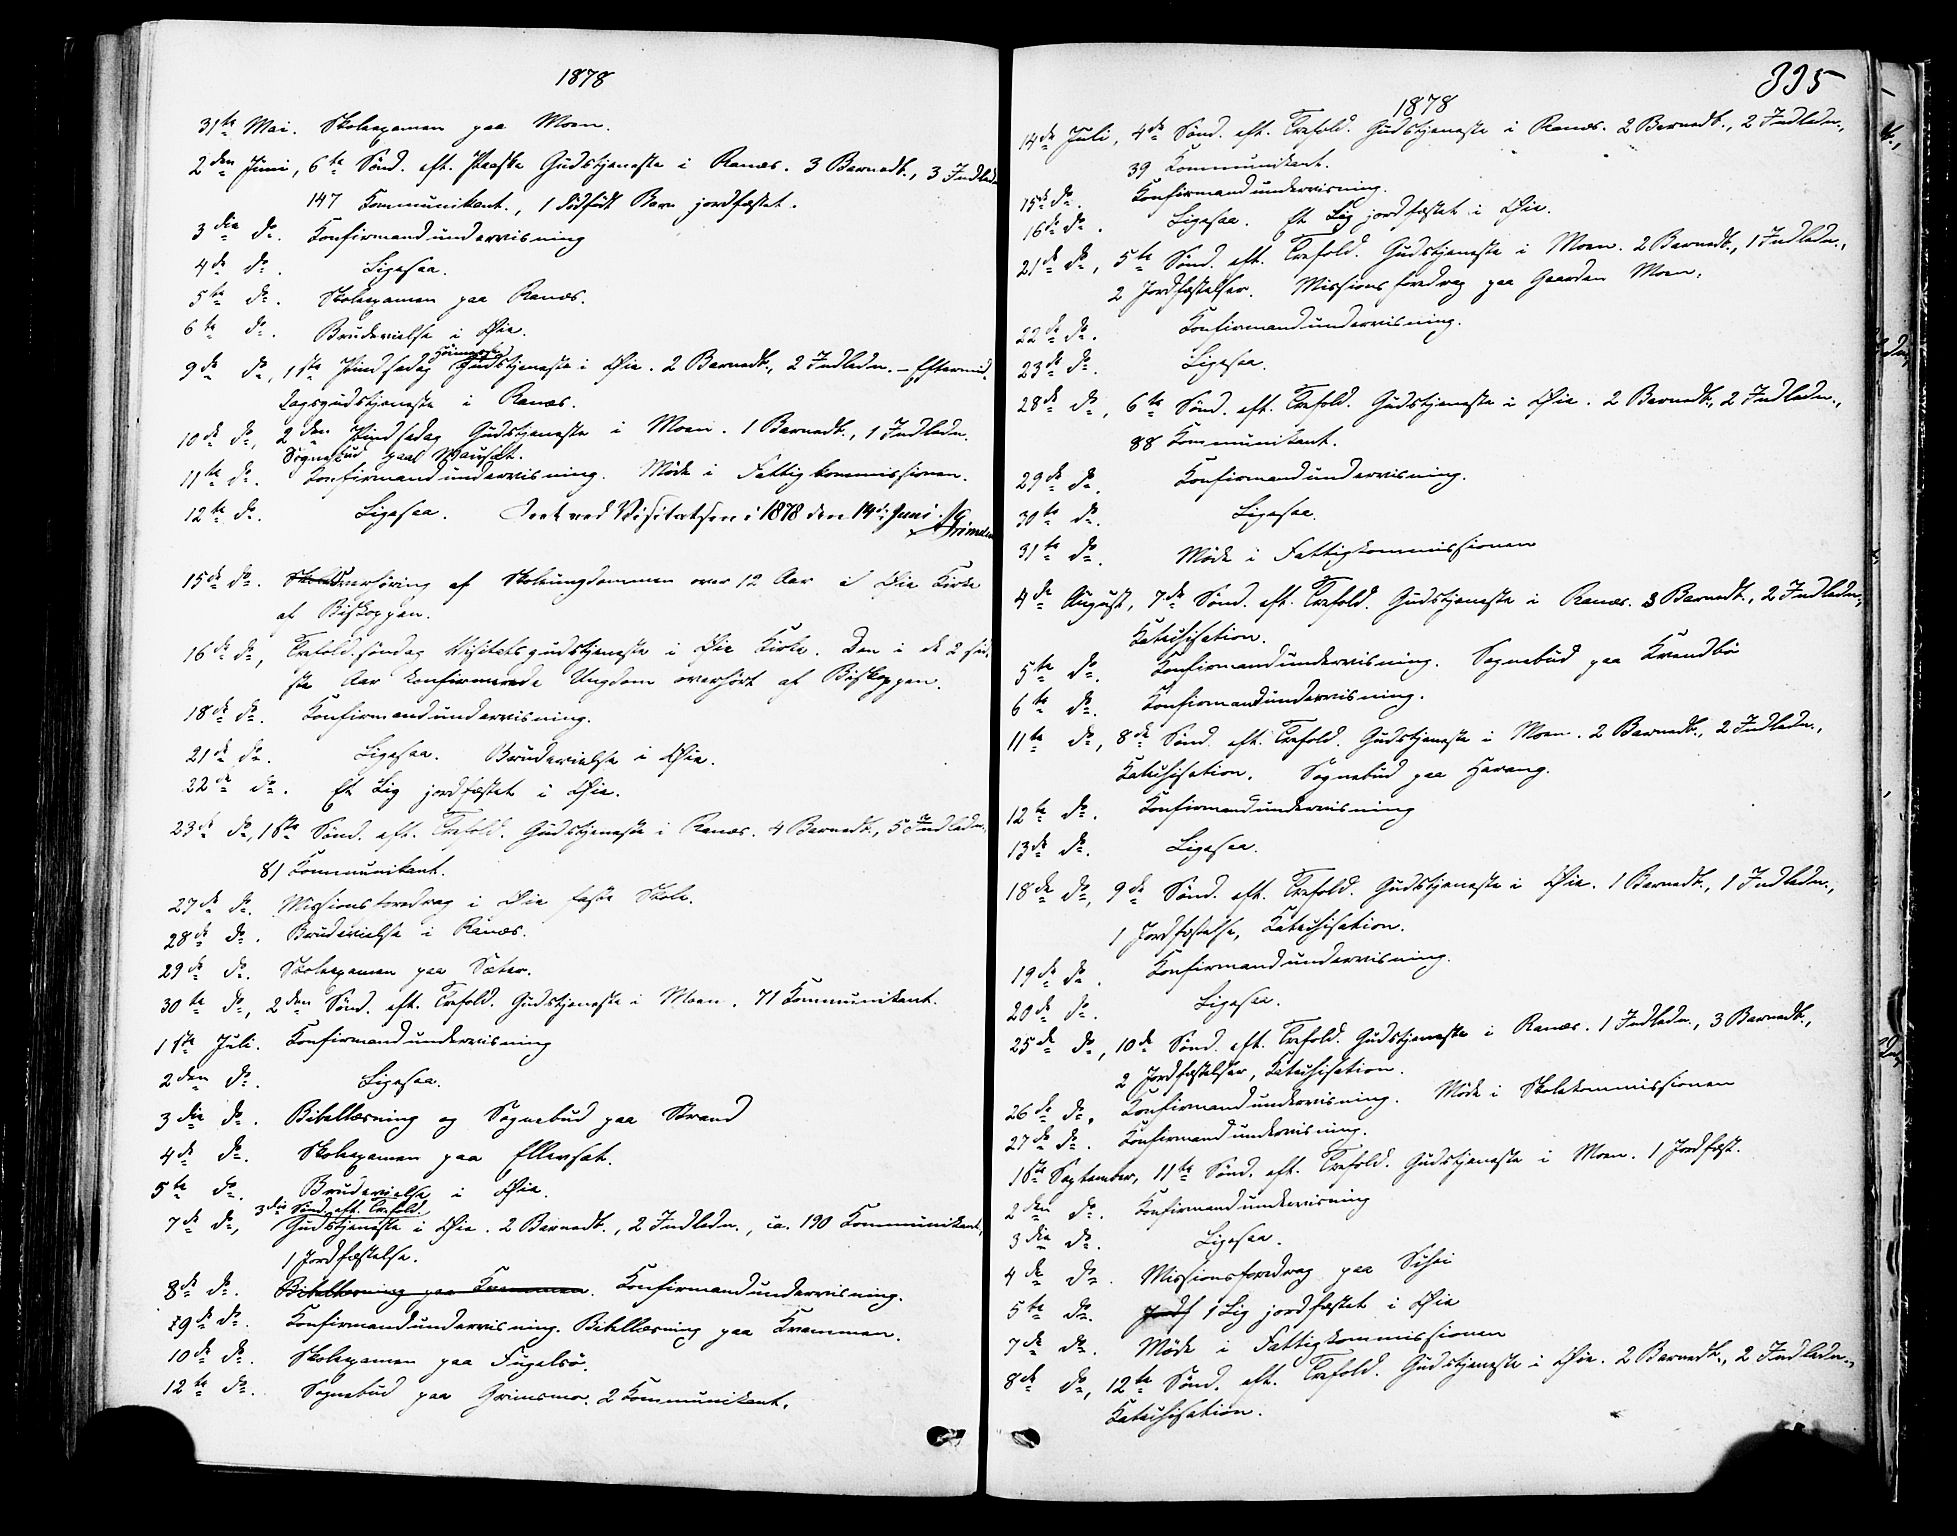 1878
31te Mai. Skoleexamen paa Moen.
2den Juni, 6te Sönd. eft. Paaske Gudstjeneste i Ranæs. 3 Barnedb., 3 Indledn.
147 Kommunikant., 1 dødfødt Barn jordfæstet.
3die do. Konfirmandundervisning
4de do. Ligesaa.
5te do. Skoleexamen paa Ranæs.
6te do. Brudevielse i Øie.
9de do, 1ste Pindsedag Gudstjeneste i Øie. 2 Barnedb., 2 Indledn. – Eftermid-
dagsgudstjeneste i Ranæs.
10de do, 2den Pindsedag Gudstjeneste i Moen. 1 Barnedb., 1 Indledn.
Sognebud paa Mausæt.
11te do. Konfirmandundervisning. Möde i Fattigkommissionen.
12te do. Ligesaa. Seet ved Visitatsen i 1878 den 14de Juni. Grimelund
15de do. Overhöring af Skoleungdommen over 12 Aar i Øie Kirke
af Biskoppen.
16de do, Trefold.söndag Visitatsgudstjeneste i Øie Kirke. Den i de 2 sid-
ste Aar konfirmerede Ungdom overhört af Biskoppen.
18de do. Konfirmandundervisning.
21de do. Ligesaa. Brudevielse i Øie.
22de do. Et Lig jordfæstet i Øie.
23de do, 1ste Sönd. eft. Trefold. Gudstjeneste i Ranæs. 4 Barnedb., 5 Indledn.,
81 Kommunikant.
27de do. Missionsforedrag i Øie faste Skole.
28de do. Brudevielse i Ranæs.
29de do. Skoleexamen paa Sæter.
30te do, 2den Sönd. eft. Trefold. Gudstjeneste i Moen. 71 Kommunikant.
1ste Juli. Konfirmandundervisning
2den do. Ligesaa.
3die do. Bibellæsning og Sognebud paa Strand
4de do. Skoleexamen paa Ellevsæt.
5te do. Brudevielse i Øie.
3die Sönd. eft. Trefold.
7de do, Gudstjeneste i Øie. 2 Barnedb., 2 Indledn., ca. 190 Kommunikant,
1 Jordfæstelse.
8de do. Bibellæsning paa Kvammen. Konfirmandundervisning.
9de do. Konfirmandundervisning. Bibellæsning paa Kvammen.
10de do. Skoleexamen paa Fugelsö.
12te do. Sognebud paa Grimsmo. 2 Kommunikant.
335
1878
14de Juli, 4de Sönd. eft. Trefold. Gudstjeneste i Ranæs. 2 Barnedb., 2 Indledn.,
39 Kommunikant.
15de do. Konfirmandundervisning.
16de do. Ligesaa. Et Lig jordfæstet i Øie.
21de do, 5te Sönd. eft. Trefold. Gudstjeneste i Moen. 2 Barnedb., 1 Indledn.,
2 Jordfæstelser. Missionsforedrag paa Gaarden Moen.
22de do. Konfirmandundervisning.
23de do. Ligesaa.
28de do, 6te Sönd. eft. Trefold. Gudstjeneste i Øie. 2 Barnedb., 2 Indledn.,
88 Kommunikant.
29de do. Konfirmandundervisning.
30te do. Ligesaa.
31te do. Möde i Fattigkommissionen
4de August, 7de Sönd. eft. Trefold. Gudstjeneste i Ranæs. 3 Barnedb., 2 Indledn.,
Katechisation.
5te do. Konfirmandundervisning. Sognebud paa Kvendbö
6te do. Konfirmandundervisning.
11te do, 8de Sönd. eft. Trefold. Gudstjeneste i Moen. 2 Barnedb., 2 Indledn.,
Katechisation. Sognebud paa Harang.
12te do. Konfirmandundervisning
13de do. Ligesaa.
18de do, 9de Sönd. eft. Trefold. Gudstjeneste i Øie. 1 Barnedb., 1 Indledn.,
1 Jordfæstelse, Katechisation.
19de do. Konfirmandundervisning.
20de do. Ligesaa.
25de do, 10de Sönd. eft. Trefold. Gudstjeneste i Ranæs. 1 Indledn., 3 Barnedb.,
2 Jordfæstelser, Katechisation.
26de do. Konfirmandundervisning. Möde i Skolekommissionen
27de do. Konfirmandundervisning.
1ste September, 11te Sönd. eft. Trefold. Gudstjeneste i Moen. 1 Jordfæst.
2den do. Konfirmandundervisning
3die do. Ligesaa.
4de do. Missionsforedrag paa
5te do. Jordf 1 Lig jordfæstet i Øie
7de do. Möde i Fattigkommissionen
8de do, 12te Sönd. eft. Trefold. Gudstjeneste i Øie. 2 Barnedb., 2 Indledn.,
Katechisation.